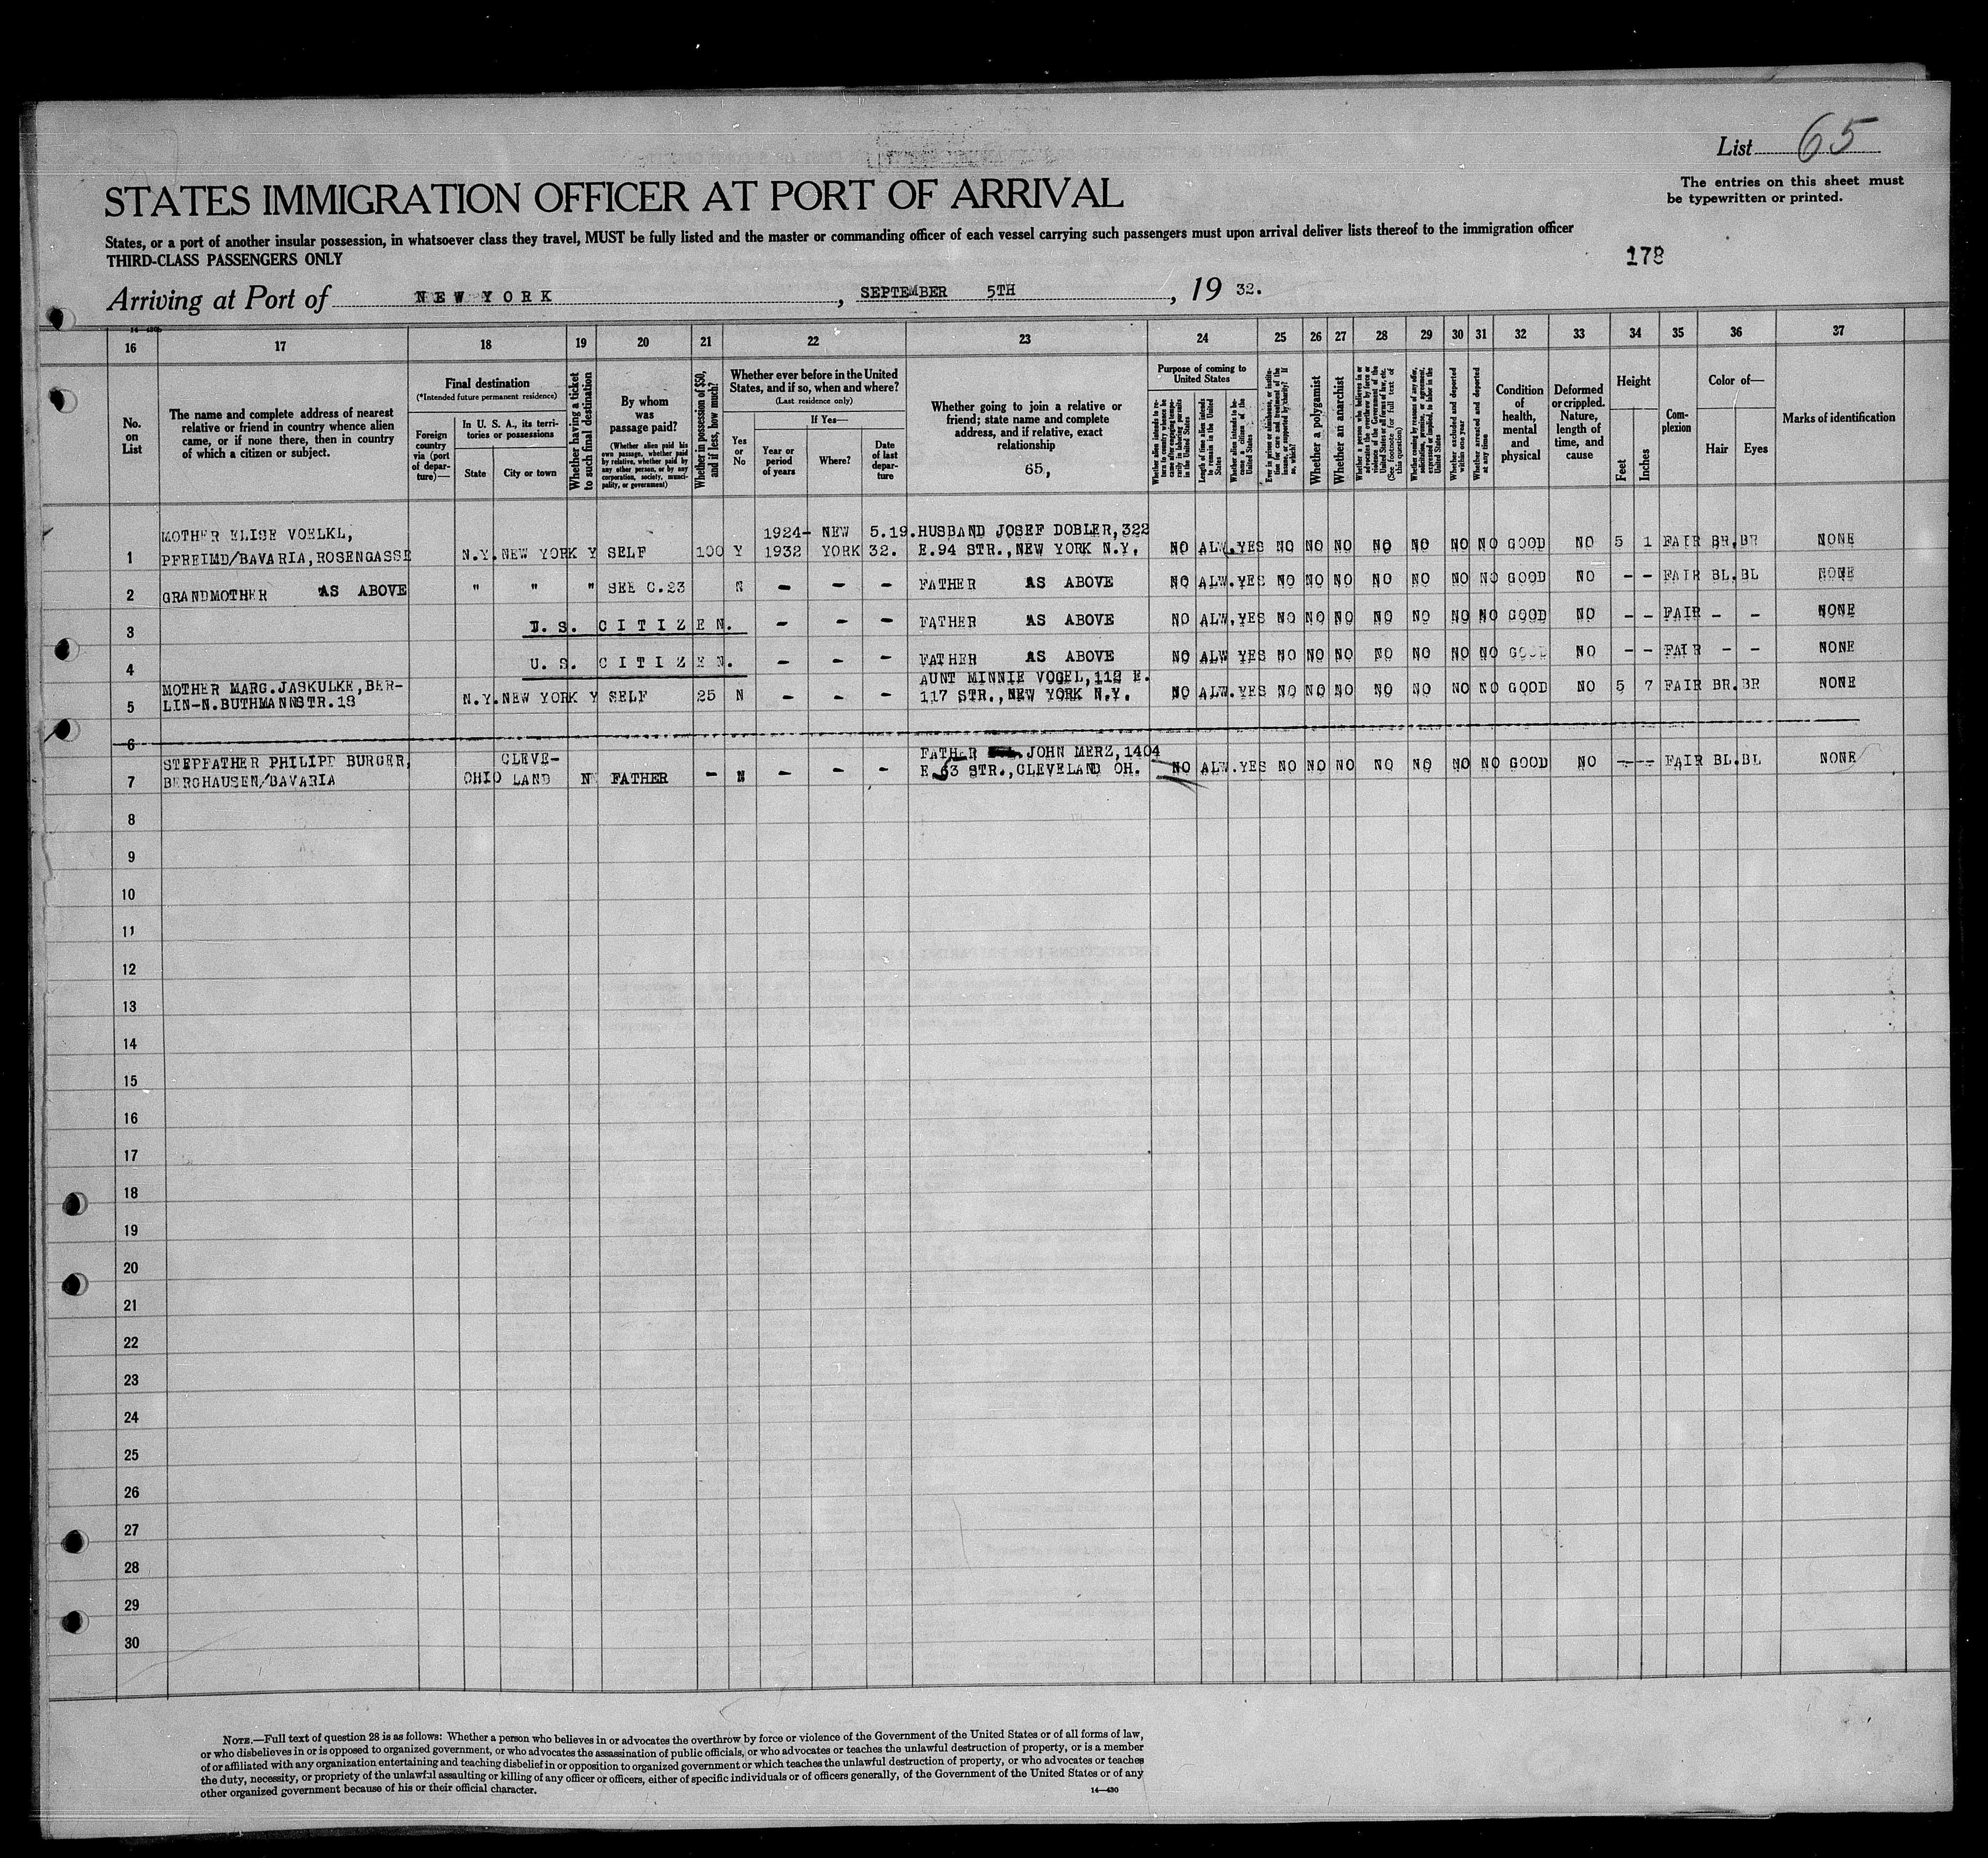 List 65
STATES IMMIGRATION OFFICER AT PORT OF ARRIVAL
The entries on this sheet must
be typewritten or printed.
States, or a port of another insular possession, in whatsoever class they travel, MUST be fully listed and the master or commanding officer of each vessel carrying such passengers must upon arrival deliver lists thereof to the immigration officer
THIRD-CLASS PASSENGERS ONLY
178
Arriving at Port of NEW YORK, SEPTEMBER 5TH, 19 32.
16 17 18 19 20 21 22 23 24 25 26 27 28 29 30 31 32 33 34 35 36 37
No. on List
The name and complete address of nearest
relative or friend in country whence alien
came, or if none there, then in country
of which a citizen or subject.
Final destination
(*Intended future permanent residence)
Foreign country via (port of departure)—
In U. S. A., its territories or possessions
State
City or town
Whether having a ticket to such final destination
By whom was passage paid?
(Whether alien paid his own passage, whether paid by relative, whether paid by any other person, or by any corporation, society, municipality, or government)
Whether in possession of $50, and if less, how much?
Whether ever before in the United States, and if so, when and where?
(Last residence only)
Yes or No
If Yes—
Year or period of years
Where?
Date of last departure
Whether going to join a relative or
friend; state name and complete
address, and if relative, exact
relationship
65,
Purpose of coming to United States
Whether alien intends to return to country whence he came after engaging temporarily in laboring pursuits in the United States
Length of time alien intends to remain in the United States
Whether alien intends to become a citizen of the United States
Ever in prison or almshouse, or institution for care and treatment of the insane, or supported by charity? If so, which?
Whether a polygamist
Whether an anarchist
Whether a person who believes in or advocates the overthrow by force or violence of the Government of the United States or of all forms of law, etc. (See footnote for full text of this question)
Whether coming by reason of any offer, solicitation, promise, or agreement, expressed or implied, to labor in the United States
Whether excluded and deported within one year
Whether arrested and deported at any time
Condition of health, mental and physical
Deformed or crippled. Nature, length of time, and cause
Height
Feet
Inches
Complexion
Color of—
Hair
Eyes
Marks of identification
1 MOTHER ELISE VOELKL, PFREIMD/BAVARIA, ROSENGASSE N.Y. NEW YORK Y SELF 100 Y 1924-1932 NEW YORK 5.19.32. HUSBAND JOSEF DOBLER, 322 E.94 STR., NEW YORK N.Y. NO ALW. YES NO NO NO NO NO NO NO GOOD NO 5 1 FAIR BR. BR NONE
2 GRANDMOTHER AS ABOVE " " " SEE C.23 N - - - FATHER AS ABOVE NO ALW. YES NO NO NO NO NO NO NO GOOD NO - - FAIR BL. BL NONE
3 U.S. CITIZEN. - - - FATHER AS ABOVE NO ALW. YES NO NO NO NO NO NO NO GOOD NO - - FAIR - - NONE
4 U.S. CITIZEN. - - - FATHER AS ABOVE NO ALW YES NO NO NO NO NO NO NO GOOD NO - - FAIR - - NONE
5 MOTHER MARG. JASKULKE, BER-LIN-N. BUTHMANNSTR. 18 N.Y. NEW YORK Y SELF 25 N - - - AUNT MINNIE VOGEL, 112 E. 117 STR., NEW YORK N.Y. NO ALW. YES NO NO NO NO NO NO NO GOOD NO 5 7 FAIR BR. BR NONE
6
7 STEPFATHER PHILIPP BURGER, BERGHAUSEN/BAVARIA OHIO CLEVE-LAND N FATHER - N - - - FATHER JOHN MERZ, 1404 E 63 STR., CLEVELAND OH. NO ALW. YES NO NO NO NO NO NO NO GOOD NO - - FAIR BL. BL NONE
8
9
10
11
12
13
14
15
16
17
18
19
20
21
22
23
24
25
26
27
28
29
30
NOTE.—Full text of question 28 is as follows: Whether a person who believes in or advocates the overthrow by force or violence of the Government of the United States or of all forms of law,
or who disbelieves in or is opposed to organized government, or who advocates the assassination of public officials, or who advocates or teaches the unlawful destruction of property, or is a member
of or affiliated with any organization entertaining and teaching disbelief in or opposition to organized government or which teaches the unlawful destruction of property, or who advocates or teaches
the duty, necessity, or propriety of the unlawful assaulting or killing of any officer or officers, either of specific individuals or of officers generally, of the Government of the United States or of any
other organized government because of his or their official character.
14—430